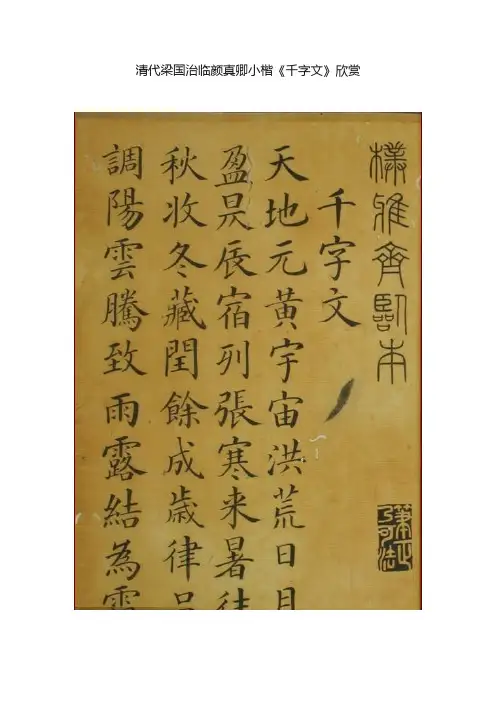 清代梁国治临颜真卿小楷《千字文》欣赏
樸雅齋臨本
千字文
天地元黃宇宙洪荒日月
盈昃辰宿列張寒来暑往
秋收冬藏閏餘成歲律吕
調陽雲騰致雨露結為